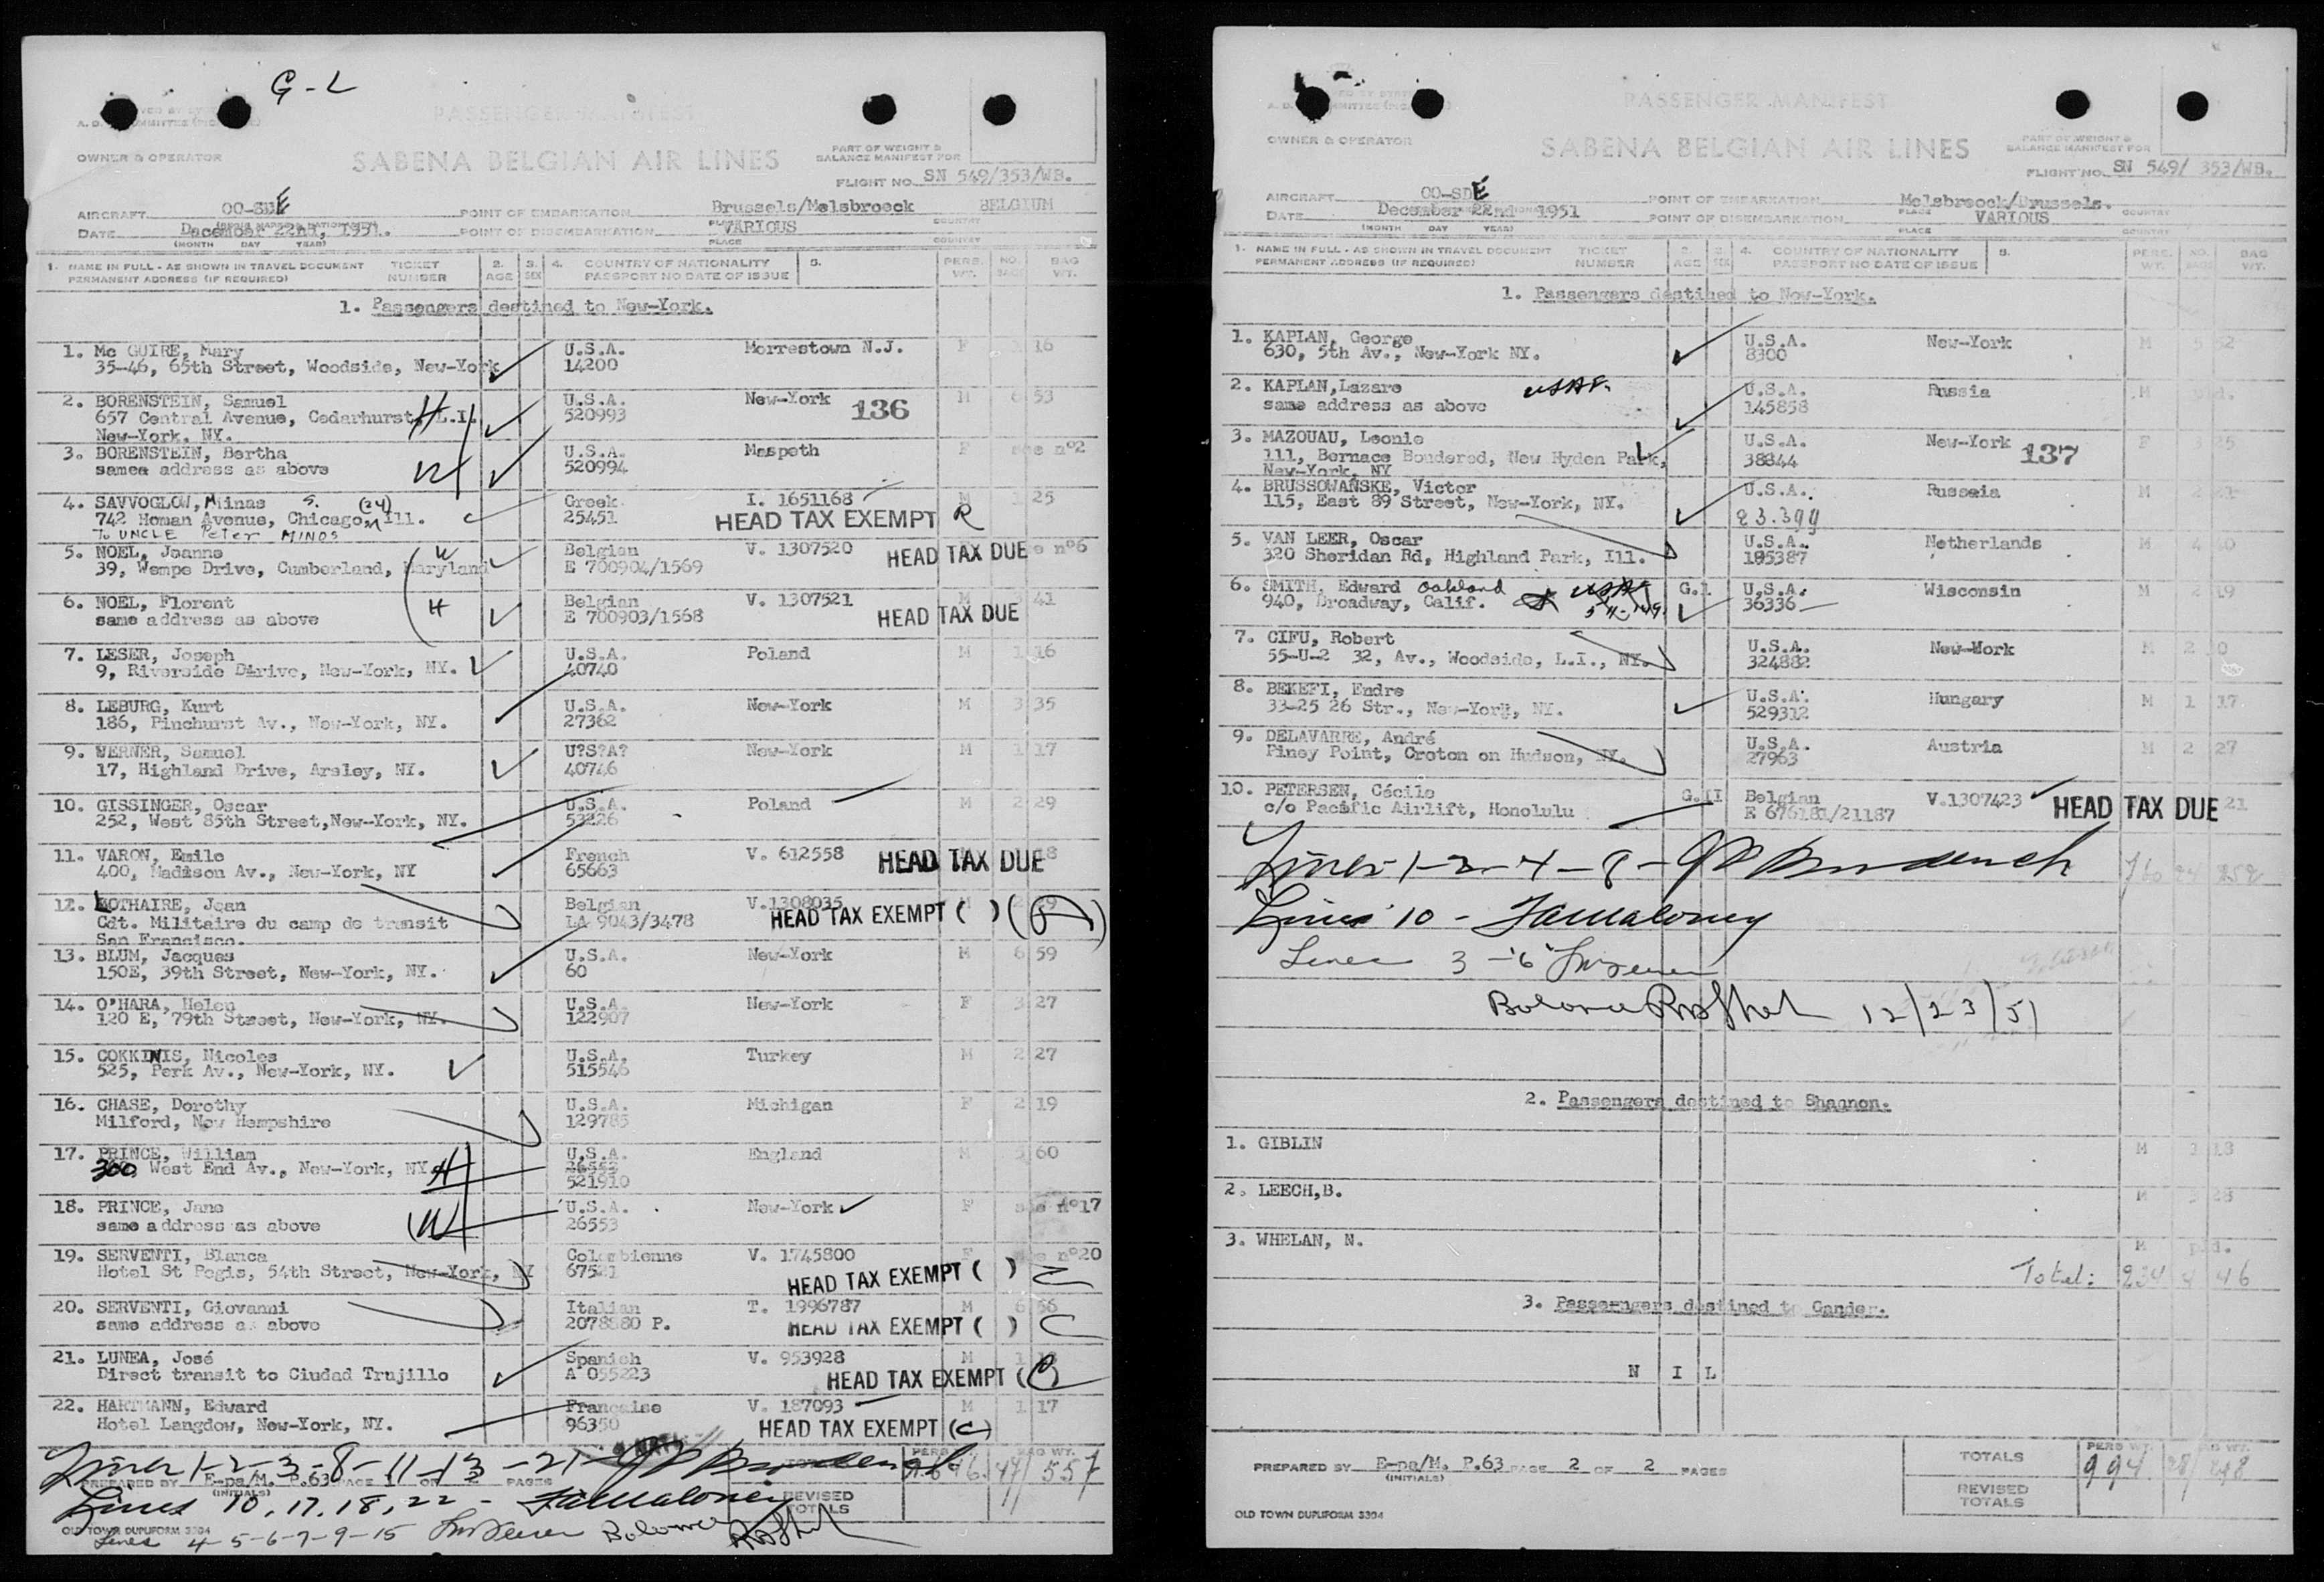 G-L
PASSENGER MANIFEST
OWNER & OPERATOR
SABENA BELGIAN AIR LINES
PART OF WEIGHT &
BALANCE MANIFEST FOR
FLIGHT NO. SN 549/353/WB.
AIRCRAFT OO-SDE POINT OF EMBARKATION Brussels/Melsbroeck BELGIUM
DATE December 22nd, 1951. POINT OF DISEMBARKATION VARIOUS
(MONTH DAY YEAR) PLACE COUNTRY
1. NAME IN FULL - AS SHOWN IN TRAVEL DOCUMENT TICKET 2. 3. 4. COUNTRY OF NATIONALITY 5. PERS. NO. BAG
PERMANENT ADDRESS (IF REQUIRED) NUMBER AGE SEX PASSPORT NO DATE OF ISSUE WT. BAGS WT.
1. Passengers destined to New-York.
1. Mc GUIRE, Mary U.S.A. Morrestown N.J. F 1 16
35-46, 65th Street, Woodside, New-York 14200
2. BORENSTEIN, Samuel U.S.A. New-York 136 M 6 53
657 Central Avenue, Cedarhurst, L.I. H 520993
New-York. NY.
3. BORENSTEIN, Bertha U.S.A. Maspeth F see n°2
samea address as above W 520994
4. SAVVOGLOW, Minas S. (24) Greek I. 1651168 M 1 25
742 Homan Avenue, Chicago, Ill. 25451 HEAD TAX EXEMPT R
To UNCLE Peter MINOS
5. NOEL, Joanne W Belgian V. 1307520 HEAD TAX DUE see n°6
39, Wempe Drive, Cumberland, Maryland E 700904/1569
6. NOEL, Florent H Belgian V. 1307521 M 3 41
same address as above E 700903/1568 HEAD TAX DUE
7. LESER, Joseph U.S.A. Poland M 1 16
9, Riverside Dirive, New-York, NY. 40740
8. LEBURG, Kurt U.S.A. New-York M 3 35
186, Pinehurst Av., New-York, NY. 27362
9. WERNER, Samuel U?S?A? New-York M 1 17
17, Highland Drive, Arsley, NY. 40746
10. GISSINGER, Oscar U.S.A. Poland M 2 29
252, West 85th Street, New-York, NY. 53226
11. VARON, Emile French V. 612558 HEAD TAX DUE 18
400, Madison Av., New-York, NY 65663
12. LOTHAIRE, Jean Belgian V.1308035
Cdt. Militaire du camp de transit LA 9043/3478 HEAD TAX EXEMPT ( )
San Francisco.
13. BLUM, Jacques U.S.A. New-York M 6 59
150E, 39th Street, New-York, NY. 60
14. O'HARA, Helen U.S.A. New-York F 3 27
120 E, 79th Street, New-York, NY. 122907
15. COKKINIS, Nicoles U.S.A. Turkey M 2 27
525, Perk Av., New-York, NY. 515546
16. CHASE, Dorothy U.S.A. Michigan F 2 19
Milford, New Hempshire 129785
17. PRINCE, William U.S.A. England M 5 60
300, West End Av., New-York, NY H 26553
521910
18. PRINCE, Jane U.S.A. New-York F see n°17
same address as above (W 26553
19. SERVENTI, Blanca Colombienne V. 1745800 F see n°20
Hotel St Regis, 54th Street, New-York, NY 67521 HEAD TAX EXEMPT ( ) C
20. SERVENTI, Giovanni Italian T. 1996787 M 6 56
same address as above 2078880 P. HEAD TAX EXEMPT ( ) C
21. LUNEA, José Spanish V. 953928 M 1
Direct transit to Ciudad Trujillo A 055223 HEAD TAX EXEMPT (C)
22. HARTMANN, Edward Française V. 187093 M 1 17
Hotel Langdow, New-York, NY. 96350 HEAD TAX EXEMPT (C)
Lines 1-2-3-8-11-13-21-
PREPARED BY E-pa/M. P.63 PAGE OF 2 PAGES 47 557
(INITIALS)
Lines 10, 17, 18, 22 - FAMaloney REVISED TOTALS
OLD TOWN DUPLIFORM 3304
Lines 4-5-6-7-9-15 Balance
PASSENGER MANIFEST
OWNER & OPERATOR
SABENA BELGIAN AIR LINES
PART OF WEIGHT &
BALANCE MANIFEST FOR
FLIGHT NO. SN 549/ 353/WB.
AIRCRAFT OO-SDE POINT OF EMBARKATION Melsbroeck/Brussels.
DATE December 22nd 1951 POINT OF DISEMBARKATION VARIOUS
(MONTH DAY YEAR) PLACE COUNTRY
1. NAME IN FULL - AS SHOWN IN TRAVEL DOCUMENT TICKET 2. 3. 4. COUNTRY OF NATIONALITY 5. PERS. NO. BAG
PERMANENT ADDRESS (IF REQUIRED) NUMBER AGE SEX PASSPORT NO DATE OF ISSUE WT. BAGS WT.
1. Passengers destined to New-York.
1. KAPLAN, George U.S.A. New-York M 5 52
630, 5th Av., New-York NY. 8300
2. KAPLAN, Lazare USAF. U.S.A. Russia M
same address as above 145858
3. MAZOUAU, Leonie U.S.A. New-York 137 F
111, Bernace Boudered, New Hyden Park, 38344
New-York, NY
4. BRUSSOWANSKE, Victor U.S.A. Russia M 2 21
115, East 89 Street, New-York, NY. 23.399
5. VAN LEER, Oscar U.S.A. Netherlands M 4 40
320 Sheridan Rd, Highland Park, Ill. 185387
6. SMITH, Edward Oakland G.I U.S.A. Wisconsin M 2 19
940, Broadway, Calif. 36336
7. CIFU, Robert U.S.A. New-Mork M 2
55-U-2 32, Av., Woodside, L.I., NY. 324882
8. BEKEFI, Endre U.S.A. Hungary M 1 17
33-25 26 Str., New-York, NY. 529312
9. DELAVARRE, André U.S.A. Austria M 2 27
Piney Point, Croton on Hudson, NY. 27963
10. PETERSEN, Cécile G.II Belgian V.1307423 HEAD TAX DUE 21
c/o Pacific Airlift, Honolulu E 676181/21187
Lines 1-2-4-8- 760 24 252
Lines 10 - FAMaloney
Lines 3-6
Balance 12/23/51
2. Passengers destined to Shannon.
1. GIBLIN M 1 18
2. LEECH, B. M 3 28
3. WHELAN, N. M p.d.
Total: 234 4 46
3. Passerngers destined to Gander.
N I L
PREPARED BY E-pa/M. P.63 PAGE 2 OF 2 PAGES TOTALS PERS WT. 994 28/
(INITIALS)
REVISED TOTALS
OLD TOWN DUPLIFORM 3304